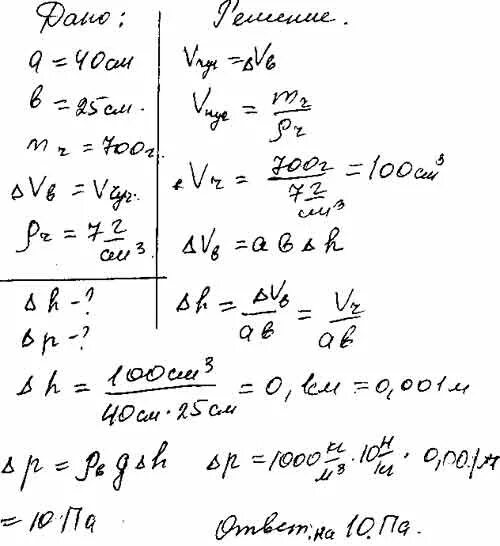 Дано:
a = 40 см
в = 25 см.
m ч = 700 г.
ΔVв = Vчуг.
ρч = 7 г/см³
Δh - ?
Δp - ?
Решение.
Vчуг = ΔVв
Vчуг = mч/ρч
Vч = 700 г/7 г/см³ = 100 см³
ΔVв = a в Δh
Δh = ΔVв/aв = Vч/aв
Δh = 100 см³/40 см · 25 см = 0,1 см = 0,001 м
Δp = ρв g Δh Δp = 1000 кг/м³ · 10 Н/кг · 0,001 м
= 10 Па Ответ: на 10 Па.